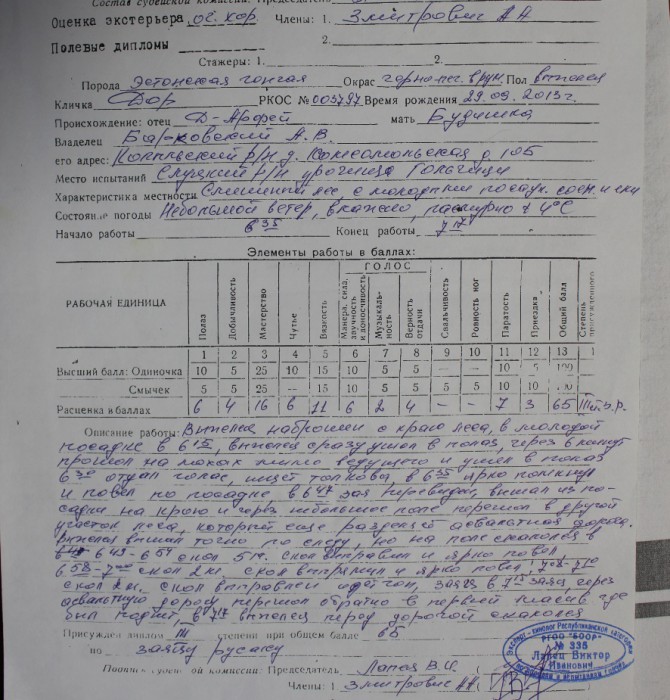 Состав судейской комиссии: Председатель
Оценка экстерьера оч. хор. Члены: 1. Змитрович А А
Полевые дипломы 2.
Стажеры: 1. 2.
Порода Эстонская гончая Окрас черно-пег. в рум. Пол выжлец
Кличка Дор РКОС № 003797 Время рождения 29.09.2013г.
Происхождение: отец Д-Арфей мать Будишка
Владелец Барковский А.В.
его адрес: Копыльский р/н д. Комсомольская д. 105
Место испытаний Слуцкий р/н урочище
Характеристика местности лес, с молодыми посадк. сосн. и ели
Состояние погоды Небольшой ветер, влажно, пасмурно + 4°С
Начало работы 6 35 Конец работы 7 17
Элементы работы в баллах:
РАБОЧАЯ ЕДИНИЦА Полаз Добычливость Мастерство Чутье Вязкость ГОЛОС Манера, сила, звучность и доносчивость Музыкальность Верность отдачи Свальчивость Ровность ног Паратость Приездка Общий балл Степень
1 2 3 4 5 6 7 8 9 10 11 12 13 1
Высший балл: Одиночка 10 5 25 10 15 10 5 5 — — 10 5 100
Смычек 5 5 25 — 15 10 5 5 10 5
Расценка в баллах 6 4 16 6 11 6 2 4 — — 7 3 65 III
Описание работы: Выжлец наброшен с краю леса, в молодой
посадке в 6 15, выжлец сразу ушел в полаз, через 6 минут
прошел на махах мимо ведущего и ушел в полаз
6 30 отдал голос, ищет толково, в 6 35 ярко помкнул
и повел по посадке, в 6 47 заяц перевиден, вышел из по-
садки на краю и через небольшое поле перешел в другой
участок леса, который еще разделяет асфальтная дорога.
Выжлец вышел точно по следу, но на поле скололся в
6 49 - 6 54 скол 5 м. Скол выправил и ярко повел,
6 58 - 7 00 скол 2 м. скол выправил и ярко повел, 7 08 - 7 10
скол 2 м. скол выправлен идет гон, заяц в 7 15 заяц через
асфальтную дорогу перешел обратно в первый массив где
был поднят, в 7 17 выжлец перед дорогой скололся
Присужден диплом III степени при общем балле 65
по зайцу русаку
Подпись судейской комиссии: Председатель Лапец В.И.
Члены: 1 Змитрович А.А.
Эксперт - кинолог Республиканской категории
РГОО "БООР"
№ 335
Лапец Виктор
Иванович